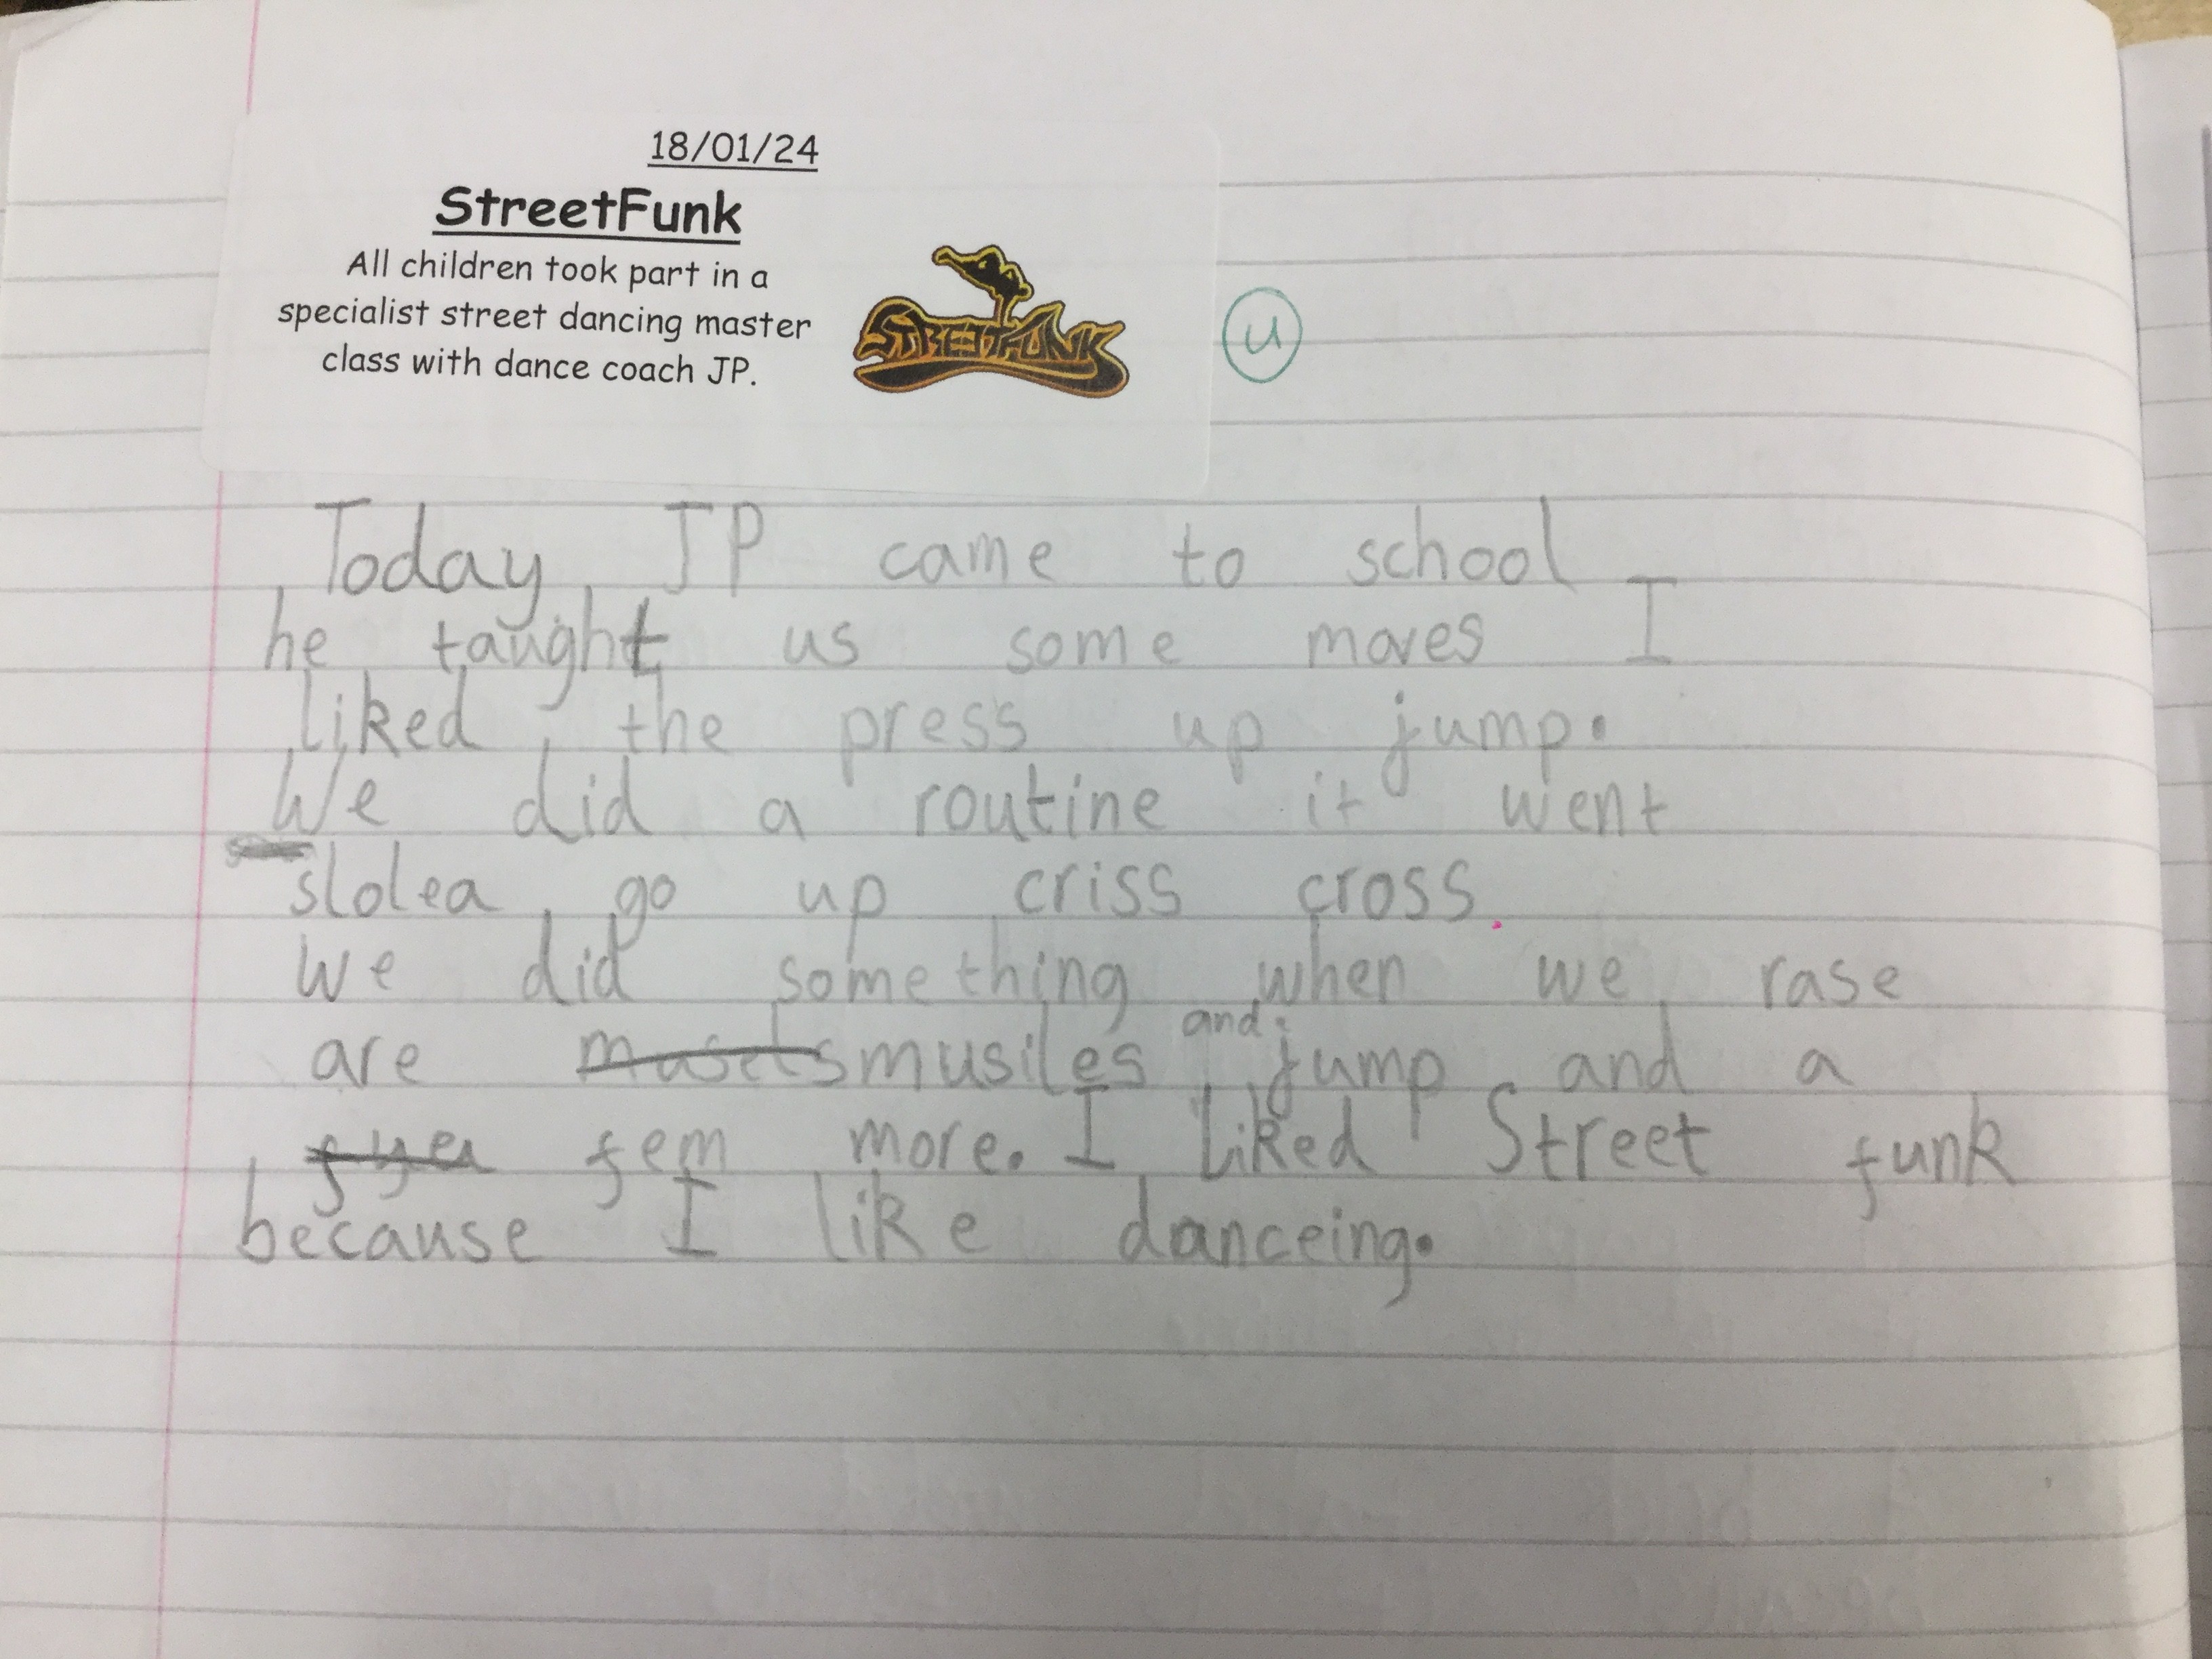 18/01/24
StreetFunk
All children took part in a
specialist street dancing master
class with dance coach JP.
STREETFUNK
u
Today JP came to school
he taught us some moves I
liked the press up jump.
We did a routine it went
slolea go up criss cross.
we did something when we rase
are musiles and jump and a
fem more. I liked Street funk
because I like danceing.